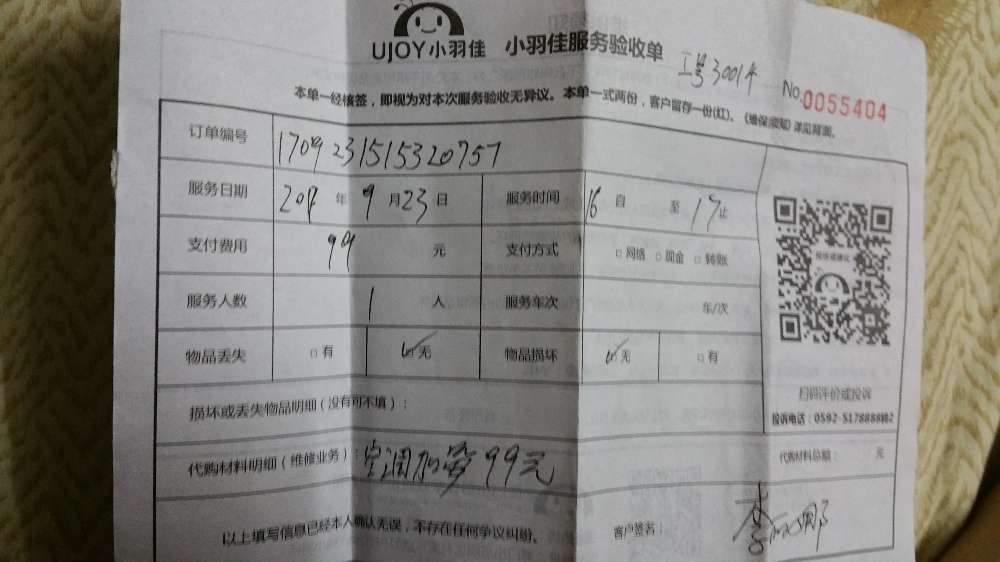 UJOY小羽佳 小羽佳服务验收单 工号3001
No.0055404
本单一经核签，即视为对本次服务验收无异议。本单一式两份，客户留存一份(红)。《维保须知》详见背面。
订单编号 1709231515320757
服务日期 2017年9月23日 服务时间 16自 至17止
支付费用 99 元 支付方式 □网络 □现金 □转账
服务人数 1 人 服务车次 车/次
物品丢失 □有 ☑无 物品损坏 ☑无 □有
扫码评价或投诉
损坏或丢失物品明细（没有可不填）：
投诉电话：0592-5178888转2
代购材料明细（维修业务）：空调加氟99元 代购材料总额： 元
以上填写信息已经本人确认无误，不存在任何争议纠纷。 客户签名： 李